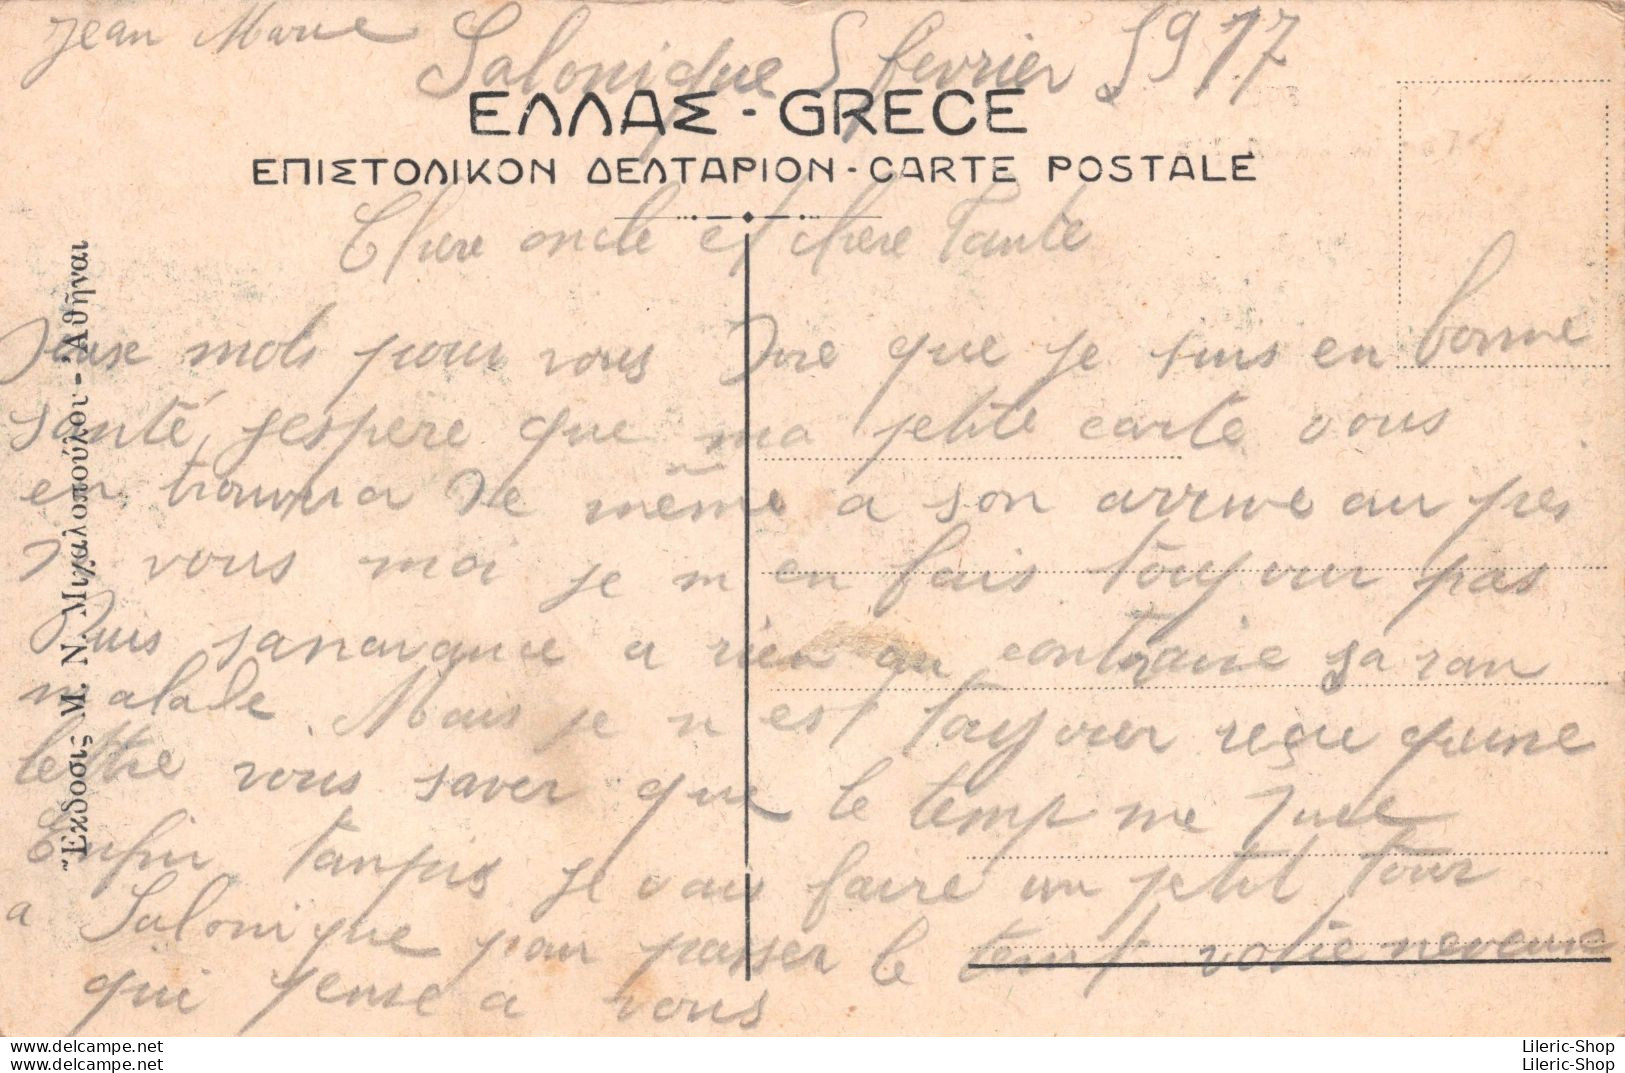 Jean Marie
Salonique 5 fevrier 1917
ΕΛΛΑΣ - GRECE
ΕΠΙΣΤΟΛΙΚΟΝ ΔΕΛΤΑΡΙΟΝ - CARTE POSTALE
Chere oncle et chere Tante
Deux mots pour vous Dire que je suis en bonne
santé, jespere que ma petite carte vous
en trouvera De même a son arrive au pres
D vous moi je m en fais toujour pas
Puis sanavance a rien au contraire sa ran
malade. Mais je n est toujour reçu qune
lettre vous saver que le temp me Dure
Enfin tanpis je vais faire un petit tour
a Salonique pour passer le temp votre neveux
qui pense a vous
Ἔκδοσις Μ. Ν. Μιχαλοπούλου - Ἀθῆναι
www.delcampe.net
www.delcampe.net
Lileric-Shop
Lileric-Shop